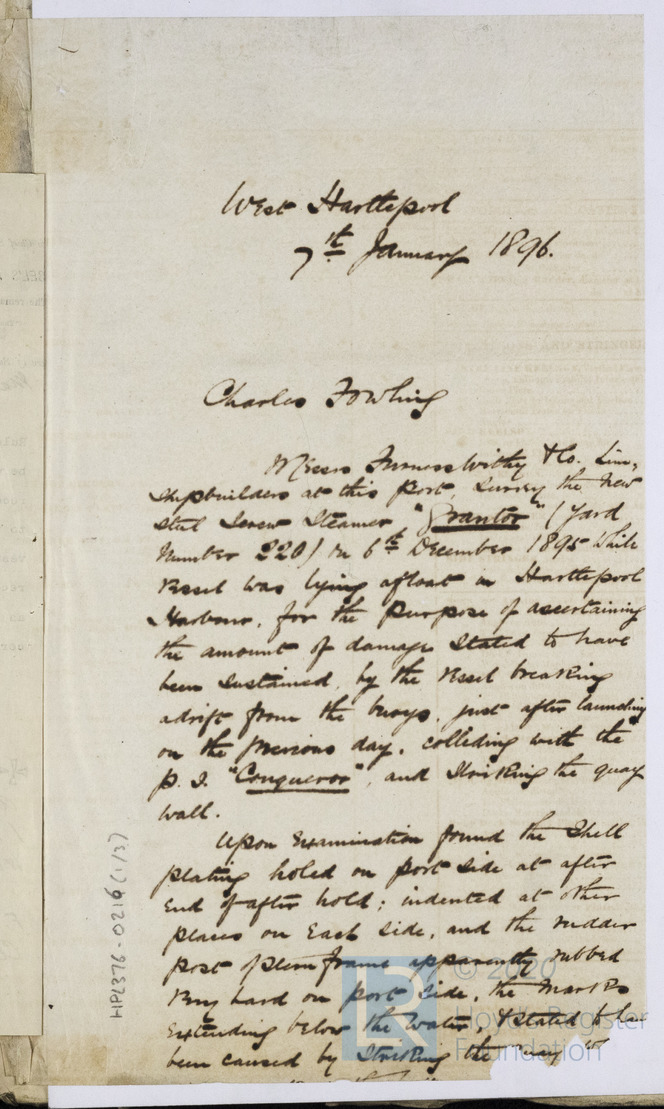 West Hartlepool
7th January 1896.
Charles Fowling
Messrs Furness Withy & Co. Lim,
Shipbuilders at this Port, Survey the New
Steel Screw Steamer "Grantor" (Yard
Number 220) on 6th December 1895 while
Vessel was lying afloat in Hartlepool
Harbour, for the purpose of ascertaining
the amount of damage stated to have
been sustained, by the Vessel breaking
adrift from the buoys, just after launching
on the previous day, colliding with the
"Conqueror", and Striking the quay
wall.
Upon Examination found the Shell
plating holed on port side at after
End of after hold; indented at other
places on Each side, and the rudder
post of stern frame apparently rubbed
Very hard on port side, the marks
Extending below the water, & stated to ha
been caused by Striking the quay w
HPL376-0216 (1/3)
© 2020
Lloyd's Register
Foundation
LR